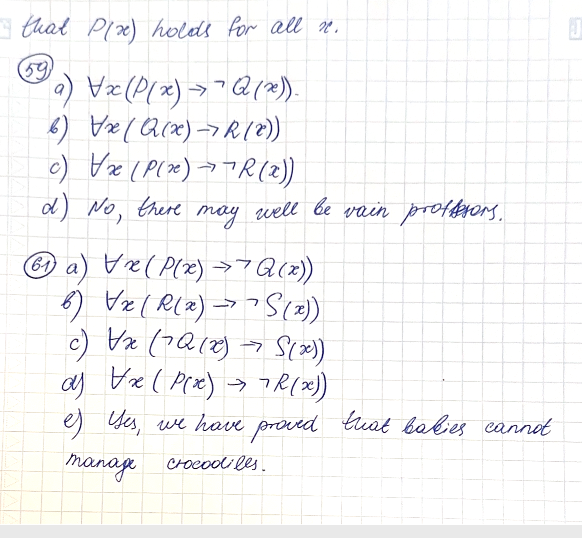 that P(x) holds for all x.
59
a) ∀x(P(x) → ¬Q(x)).
b) ∀x(Q(x) → R(x))
c) ∀x(P(x) → ¬R(x))
d) No, there may well be vain professors.
61 a) ∀x(P(x) → ¬Q(x))
b) ∀x(R(x) → ¬S(x))
c) ∀x(¬Q(x) → S(x))
d) ∀x(P(x) → ¬R(x))
e) Yes, we have proved that babies cannot
manage crocodiles.